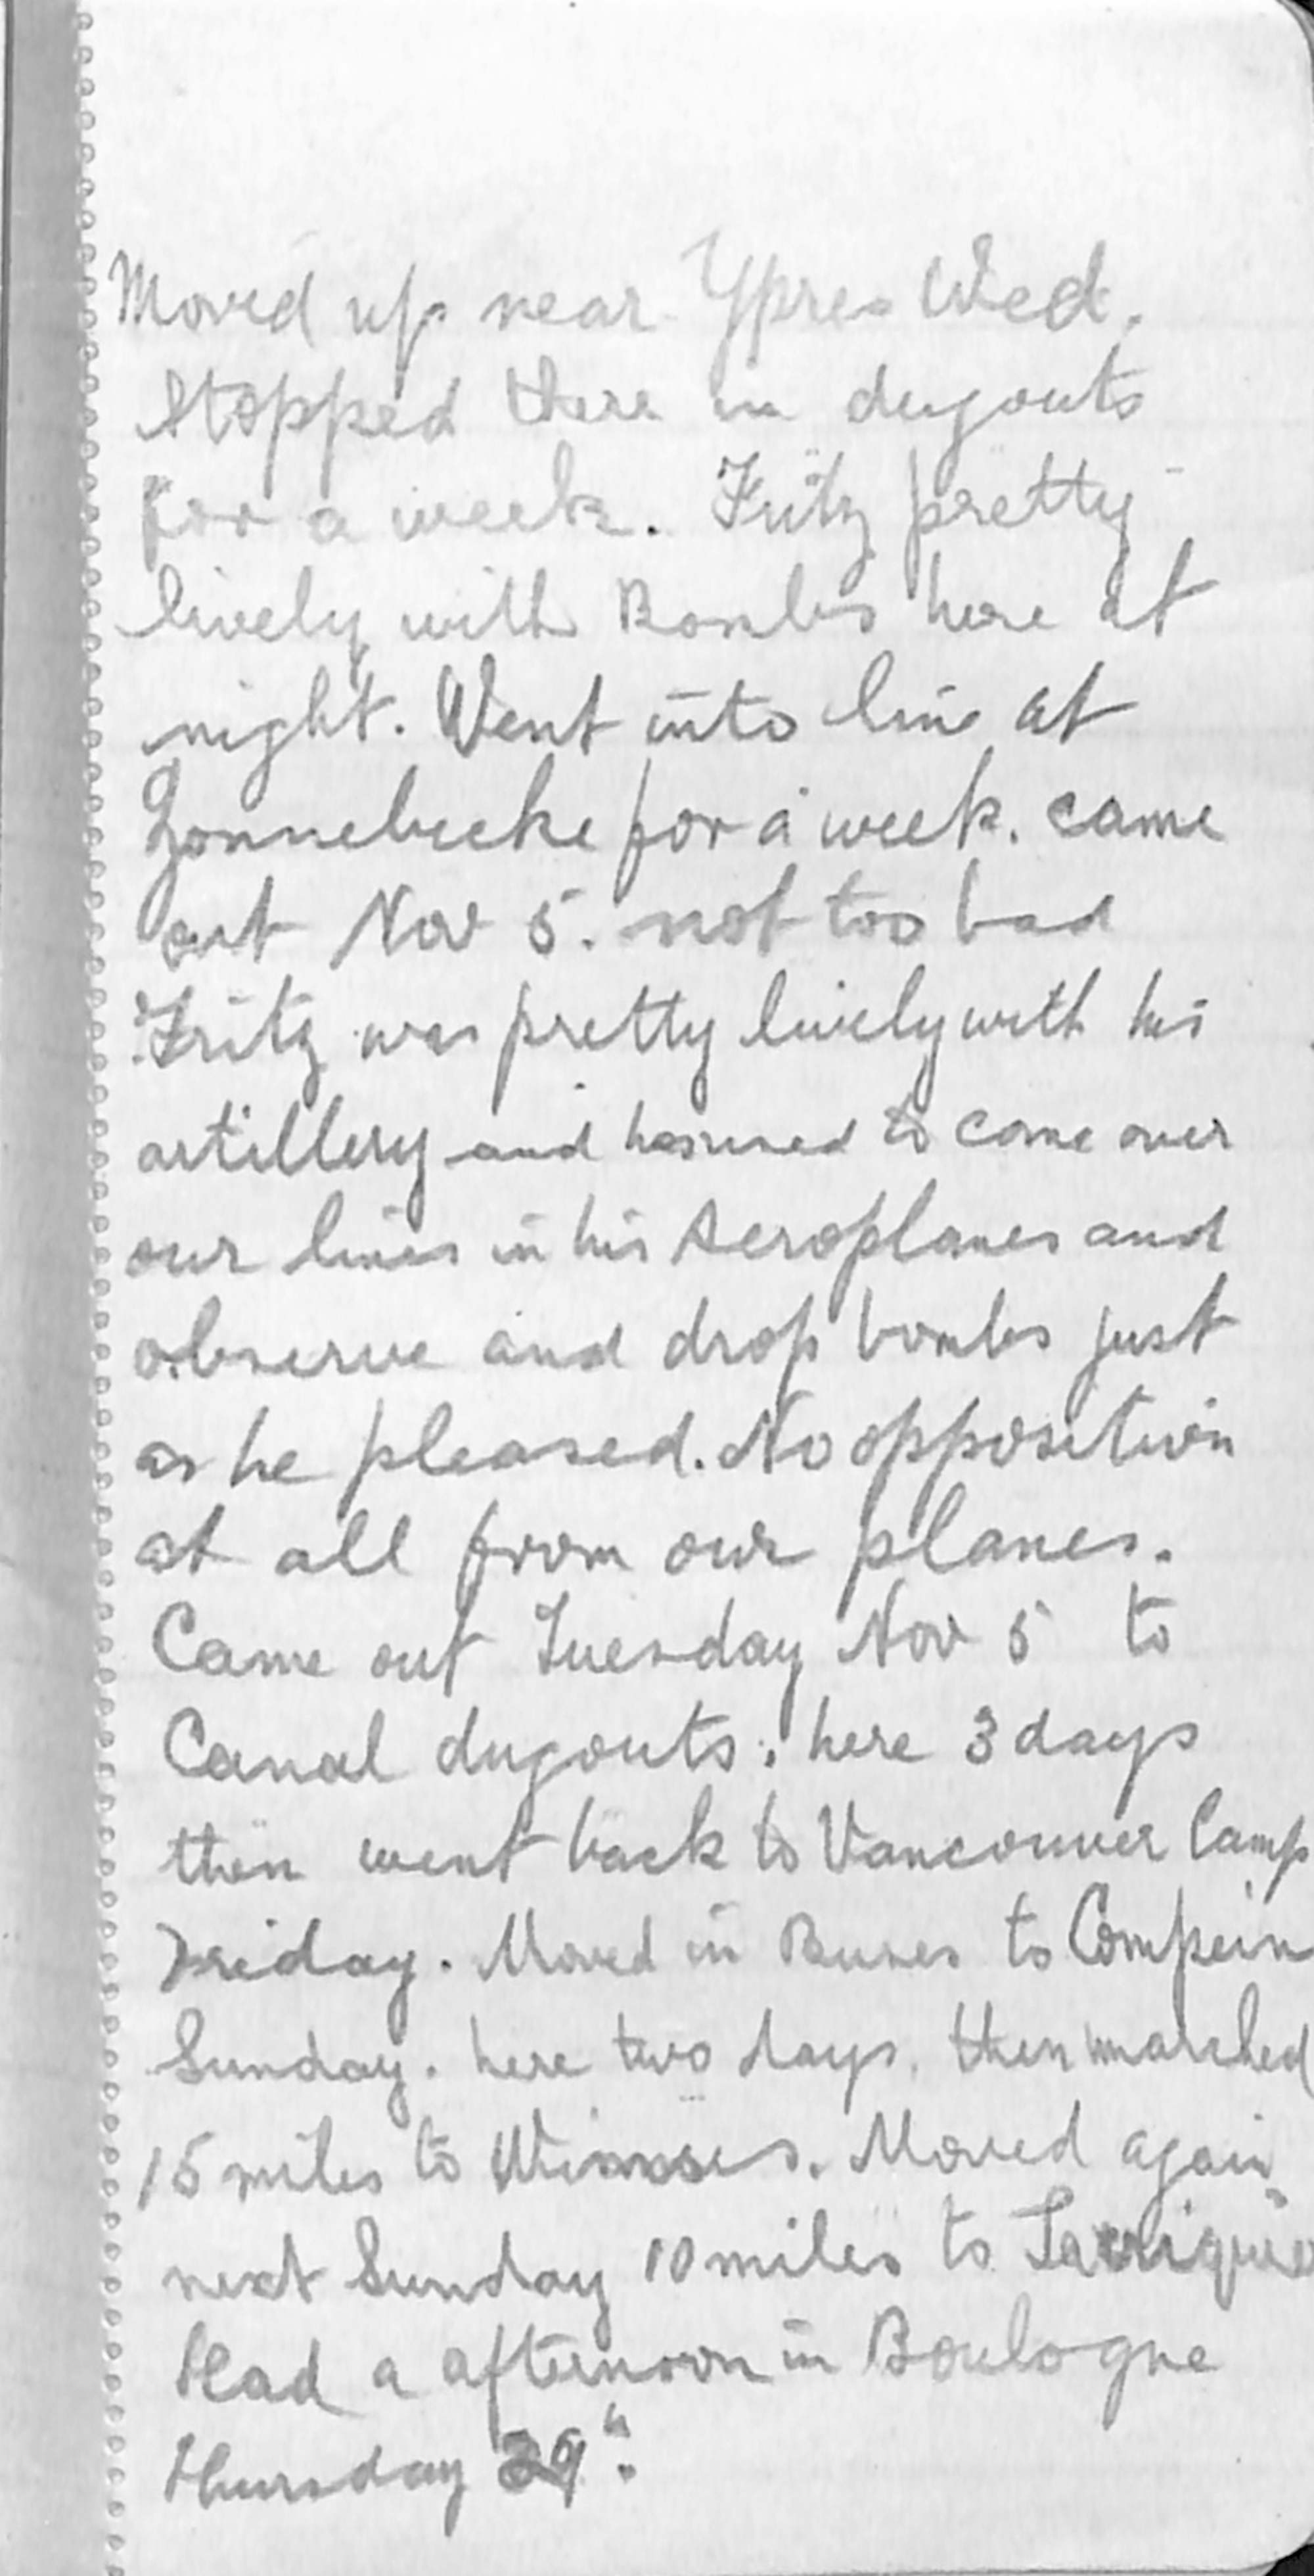 Moved up near Ypres Wed.
Stopped there in dugouts
for a week. Fritz pretty
lively with Bombs here at
night. Went into line at
Zonnebecke for a week. came
out Nov 5. not too bad
Fritz was pretty lively with his
artillery and to come over
our lines in his Aeroplanes and
observe and drop bombs just
as he pleased. No opposition
at all from our planes.
Came out Tuesday Nov 5 to
Canal dugouts. here 3 days
then went back to Vancouver Camp
Friday. Moved in Buses to Compein
Sunday. here two days. then marched
15 miles to Moved again
next Sunday 10 miles to
Had a afternoon in Boulogne
Thursday 29".